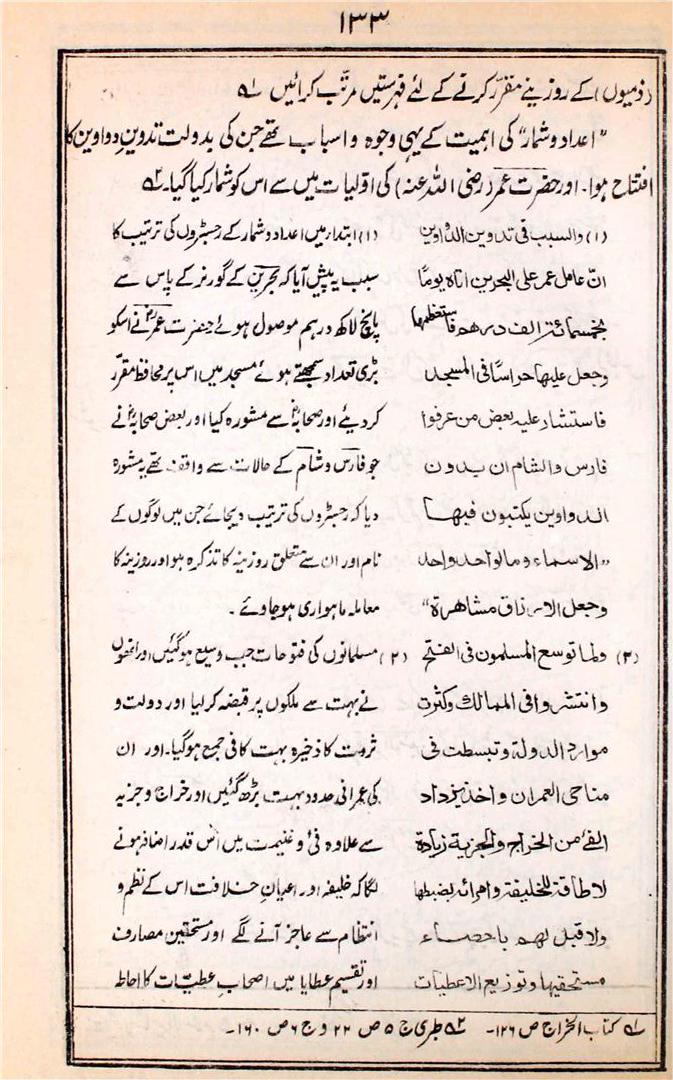 ۱۳۳
(ذمیوں) کے روزینے مقرّر کرنے کے لئے فہرستیں مرتّب کرائیں ؂۱
”اعداد و شمار“ کی اہمیت کے یہی وجوہ و اسباب تھے جن کی بدولت تدوینِ دواوین کا
افتتاح ہوا۔ اور حضرت عمر (رضی اللہ عنہ) کی اوّلیات میں سے اس کو شمار کیا گیا۔ ؂۲
(۱) والسبب فی تدوین الدواوین
انّ عامل عمر علی البحرین اتاہ یومًا
بخمسمائۃ الف درھم فاستعظمھا
وجعل علیھا حراسًا فی المسجد
فاستشار علیہ بعض من عرفوا
فارس والشام ان یدون
الدواوین یکتبون فیھا
الاسماء ومالواحد واحد
وجعل الارزاق مشاھرۃ“
(۲) ولما توسع المسلمون فی الفتح
وانتشروا فی الممالک وکثرت
موارد الدولۃ وتبسطت فی
مناحی العمران واخذ یزداد
الفئ من الخراج والجزیۃ زیادۃ
لاطاقۃ للخلیفۃ وامرائہ بضبطھا
ولا قبل لھم باحصاء
مستحقیھا وتوزیع الاعطیات
(۱) ابتدار میں اعداد و شمار کے رجسٹروں کی ترتیب کا
سبب یہ پیش آیا کہ بحرین کے گورنر کے پاس سے
پانچ لاکھ درہم موصول ہوئے حضرت عمرؓ نے اسکو
بڑی تعداد سمجھتے ہوئے مسجد میں اس پر محافظ مقرّر
کر دیئے اور صحابہؓ سے مشورہ کیا اور بعض صحابہؓ نے
جو فارس و شام کے حالات سے واقف تھے یہ مشورہ
دیا کہ رجسٹروں کی ترتیب دیجائے جن میں لوگوں کے
نام اور ان سے متعلق روزینہ کا تذکرہ ہو اور روزینہ کا
معاملہ ماہواری ہو جاوے۔
(۲) مسلمانوں کی فتوحات جب وسیع ہو گئیں اور انھوں
نے بہت سے ملکوں پر قبضہ کر لیا اور دولت و
ثروت کا ذخیرہ بہت کافی جمع ہو گیا۔ اور ان
کی عمرانی حدود بہت بڑھ گئیں اور خراج و جزیہ
سے علاوہ فئ و غنیمت میں اس قدر اضافہ ہونے
لگا کہ خلیفہ اور اعیانِ خلافت اس کے نظم و
انتظام سے عاجز آنے لگے اور مستحقین مصارف
اور تقسیم عطایا میں اصحابِ عطیّات کا احاطہ
؂۱ کتاب الخراج ص ۱۲۶۔ ؂۲ طبری ج ۵ ص ۲۲ و ج ۶ ص ۱۶۰۔